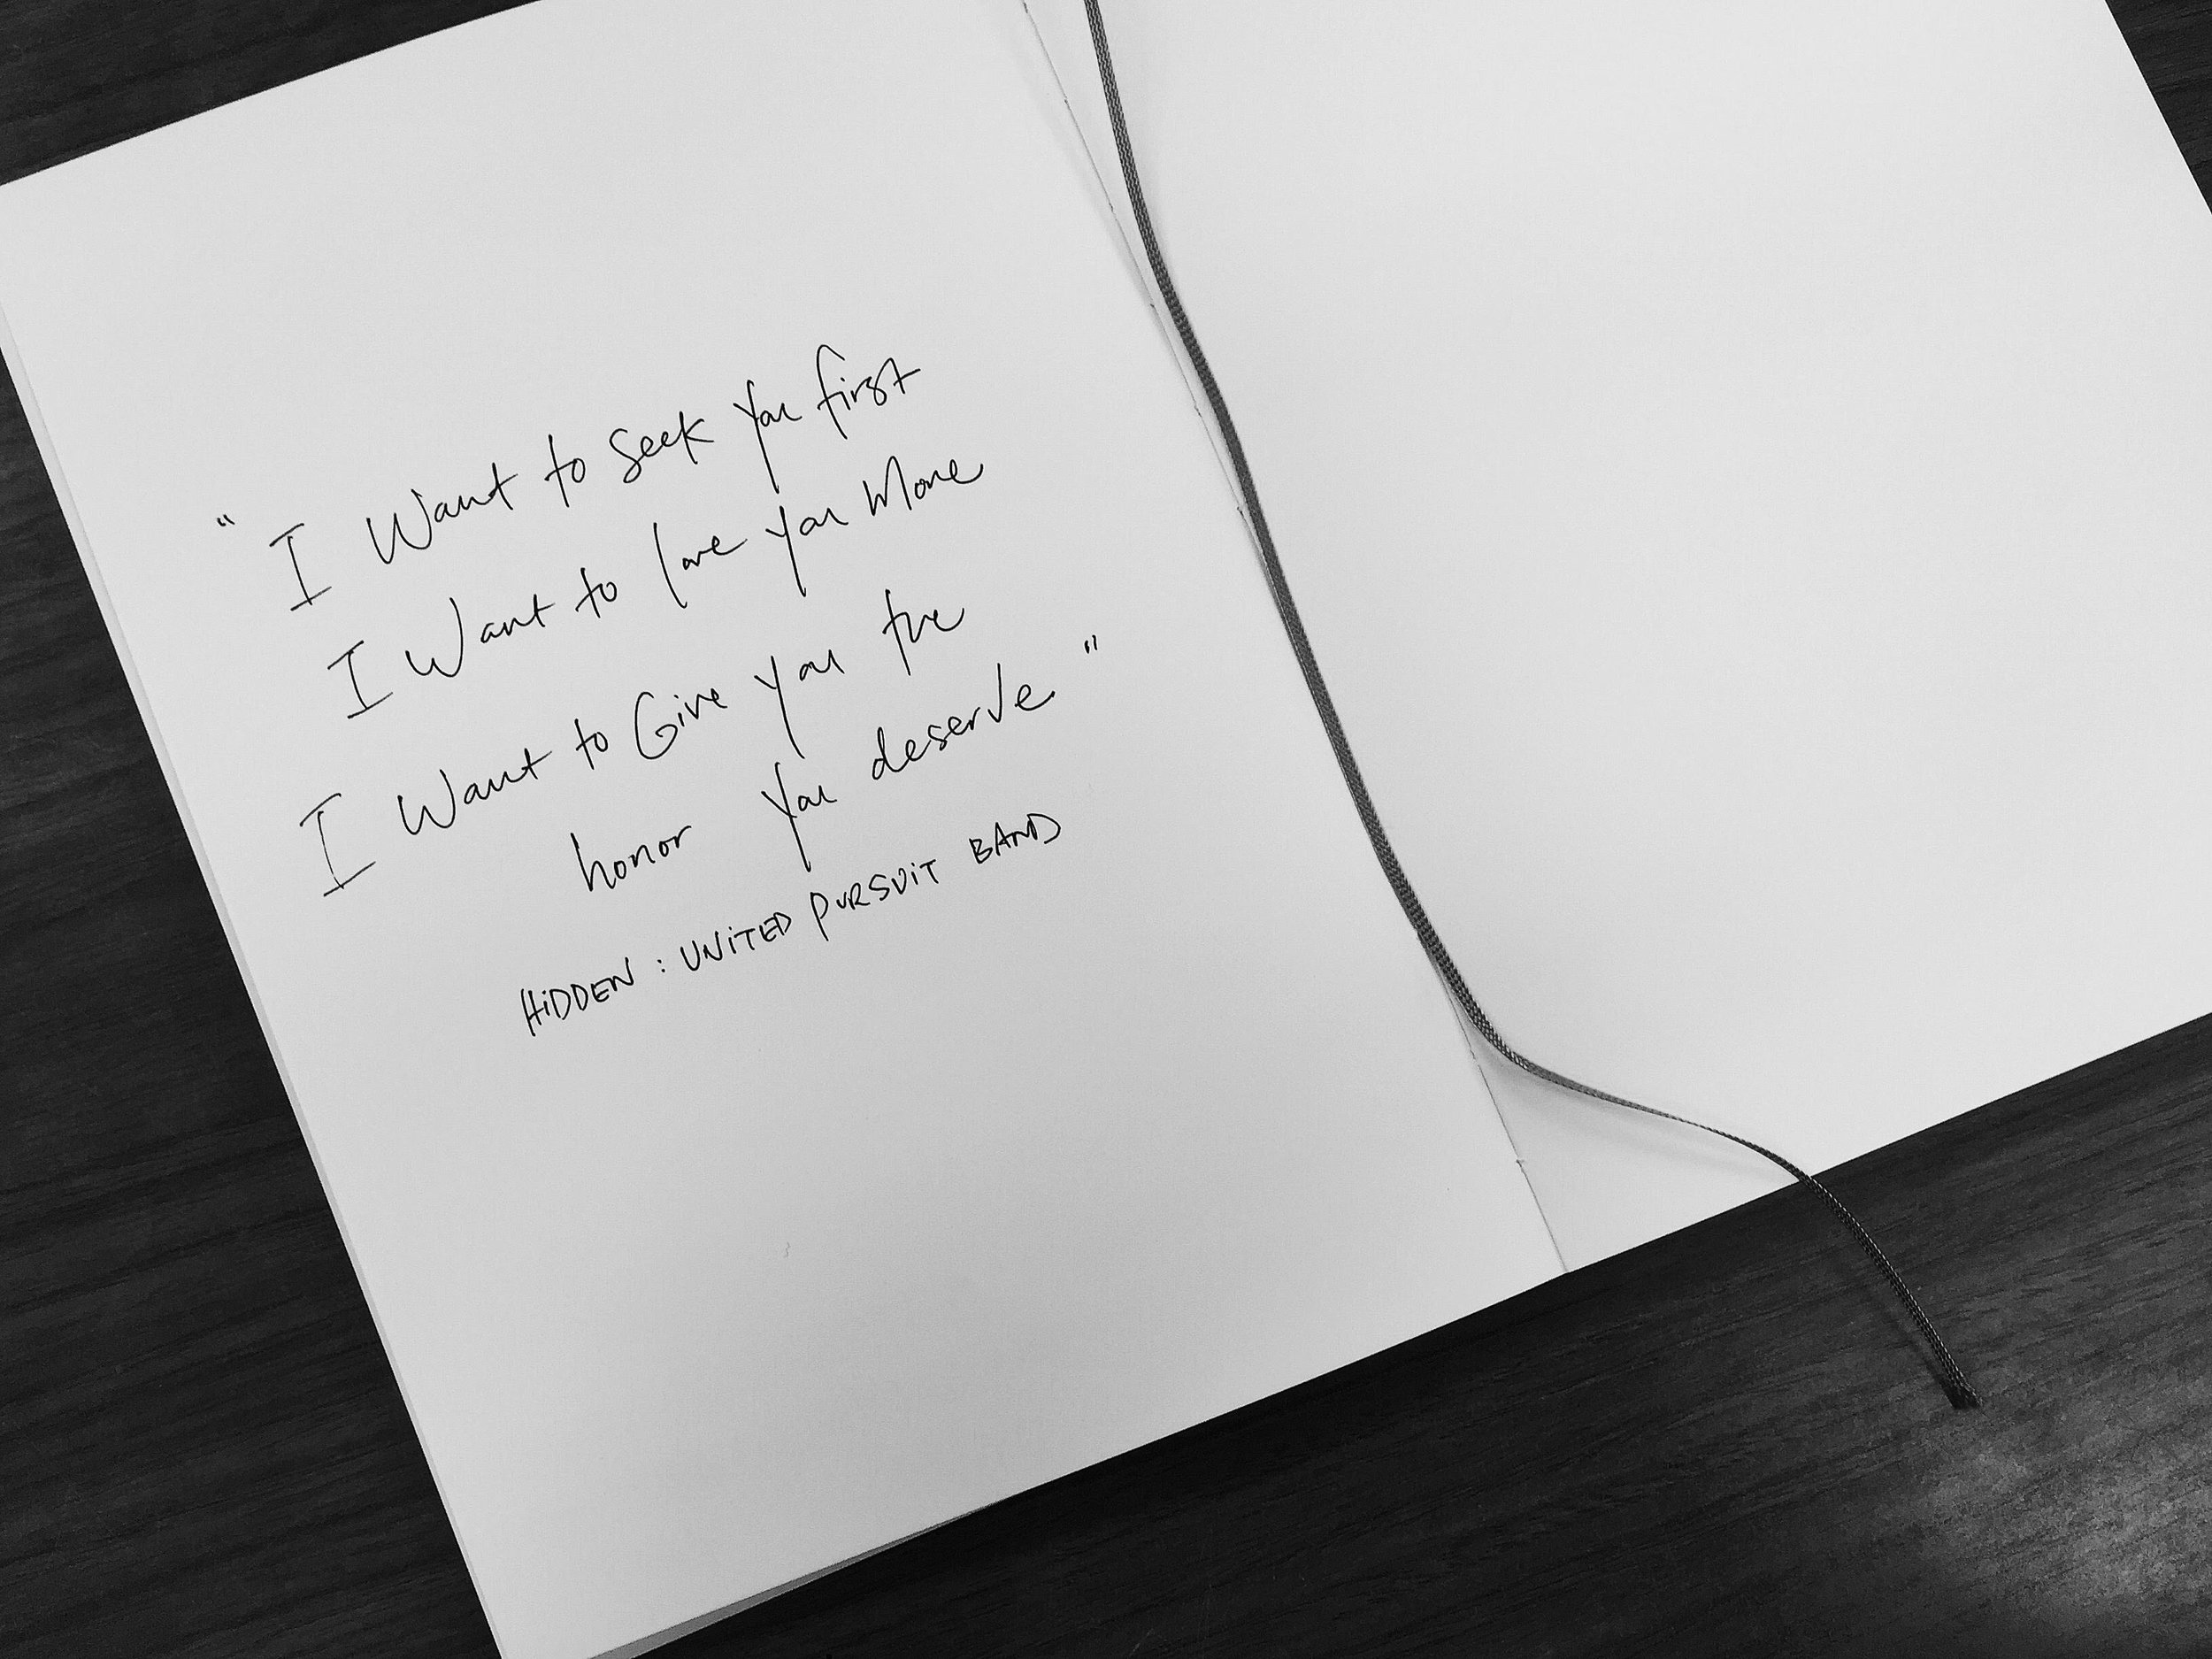 "I Want to seek you first
I Want to love you More
I Want to Give you the
honor you deserve"
HiDDEN : UNiTED PURSUiT BAND